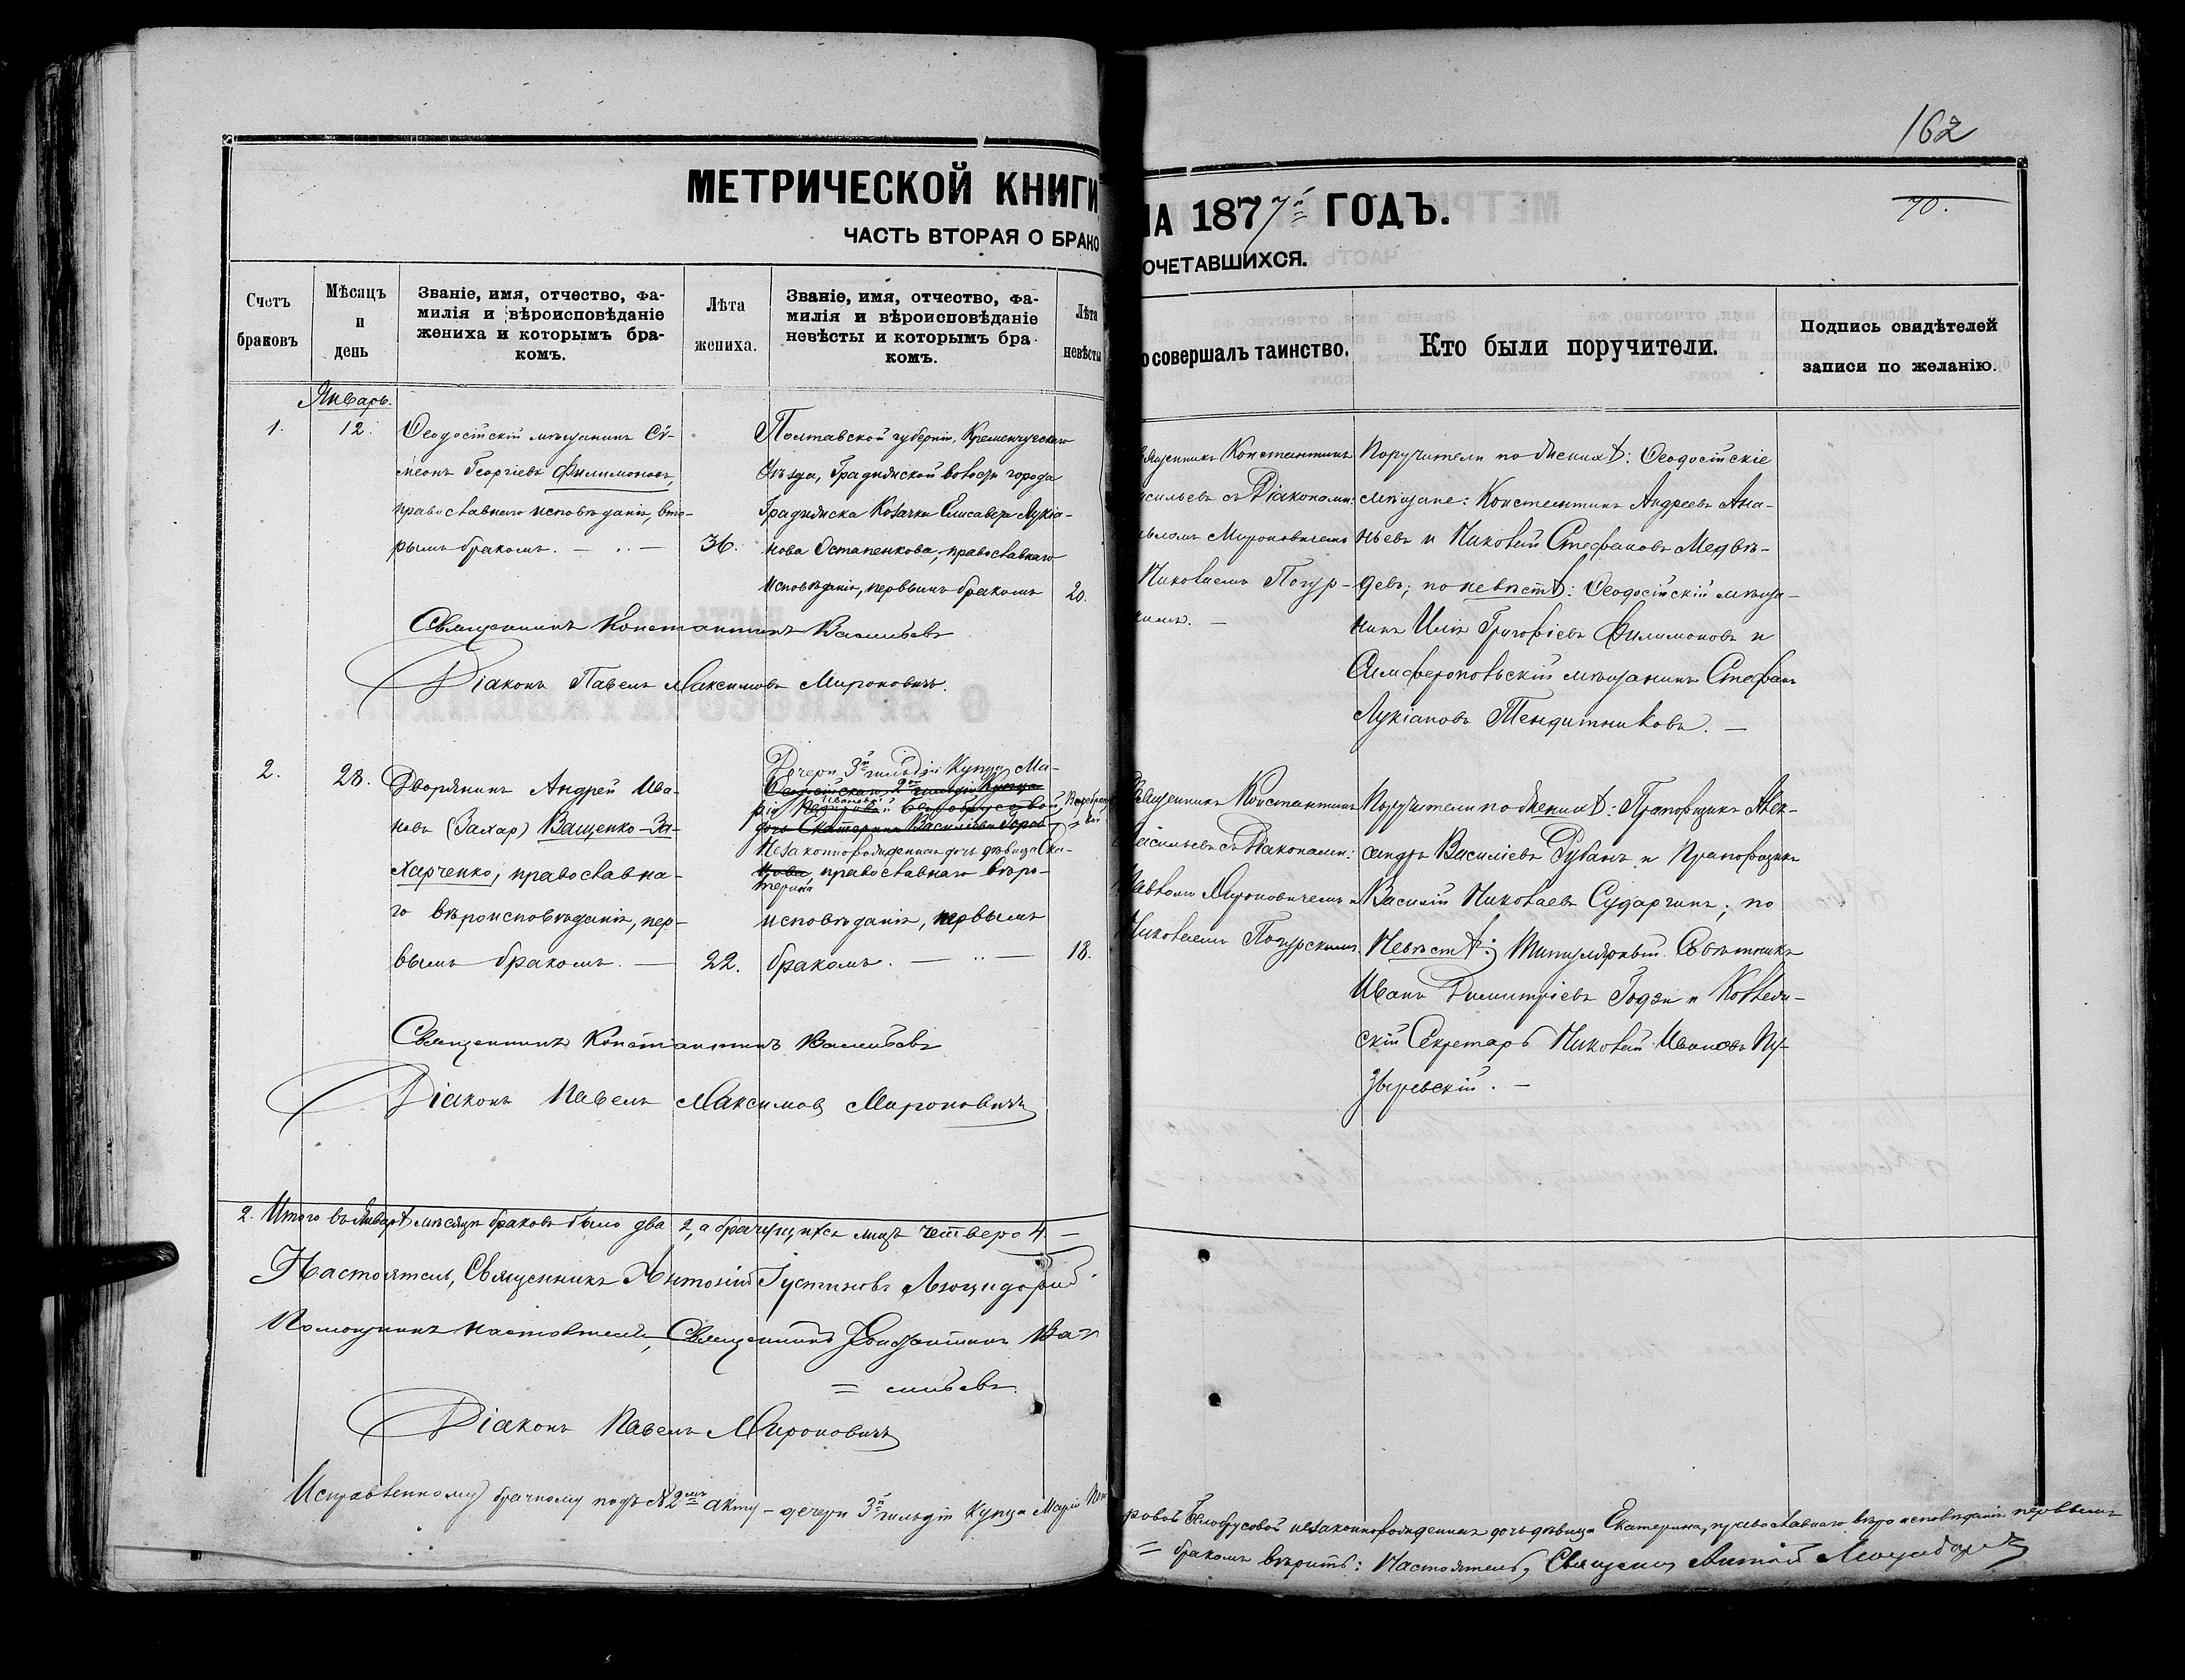 162
МЕТРИЧЕСКОЙ КНИГИ НА 1877й ГОДЪ.
70.
ЧАСТЬ ВТОРАЯ О БРАКОСОЧЕТАВШИХСЯ.
Счетъ браковъ
Мѣсяцъ и день
Званіе, имя, отчество, фа-
милія и вѣроисповѣданіе
жениха и которымъ бра-
комъ.
Лѣта жениха.
Званіе, имя, отчество, фа-
милія и вѣроисповѣданіе
невѣсты и которымъ бра-
комъ.
Лѣта невѣсты
о совершалъ таинство.
Кто были поручители.
Подпись свидѣтелей
записи по желанію.
Январь.
1.
12.
Ѳеодосійскій мѣщанинъ Сѵ-
меонъ Георгіевъ Филимоновъ,
православнаго исповѣданія, вто-
рымъ бракомъ. —
36.
Полтавской губерніи, Кременчугскаго
Уѣзда, Градижской волости города
Градижска Козачка Елисавета Лукіа-
нова Остапенкова, православнаго
исповѣданія, первымъ бракомъ
20.
Священникъ Константинъ Васильевъ
Діаконъ Павелъ Максимовъ Мироновичъ.
вященникъ Константинъ
сильевъ съ Діаконами:
Мироновичемъ
Николаемъ Погур-
скимъ. —
Поручители по женихѣ: Ѳеодосійскіе
мѣщане: Константинъ Андреевъ Ана-
ньевъ и Николай Стефановъ Медвѣ-
девъ; по невѣстѣ: Ѳеодосійскій мѣща-
нинъ Илія Григоріевъ Филимоновъ и
Симферопольскій мѣщанинъ Стефанъ
Лукіановъ Тендитниковъ. —
2.
28.
Дворянинъ Андрей Ива-
новъ (Захар) Ващенко-За-
харченко, православна-
го вѣроисповѣданія, пер-
вымъ бракомъ. —
22.
Дочери 3й гильдіи Купца Ма-
ріи Бѣлобрусовой,
Незаконнорожденная дочь дѣвица Ека-
терина
православнаго вѣро-
исповѣданія, первымъ
бракомъ. —
18.
Священникъ Константинъ Васильевъ
Діаконъ Павелъ Максимовъ Мироновичъ
Священникъ Константинъ
Васильевъ съ Діаконами:
Павломъ Мироновичемъ и
Николаемъ Погурскимъ.
Поручители по женихѣ: Прапорщикъ Алек-
сандръ Василіевъ Рубанъ и Прапорщикъ
Василій Николаевъ Сударгинъ; по
Невѣстѣ: Титулярный Совѣтникъ
Иванъ Димитріевъ Годзи и Коллеж-
скій Секретарь Николай Ивановъ Пу-
зыревскій. —
2. Итого въ Январѣ мѣсяцѣ браковъ было два 2, а брачущихся лицъ четверо 4. —
Настоятель, Священникъ Антоній Іустиновъ
Помощникъ настоятеля, Священникъ Константинъ Ва-
= сильевъ.
Діаконъ Павелъ Мироновичъ
Исправленному брачному подъ № 2мъ акту – дочери 3й гильдіи Купца Маріи
ровой Бѣлобрусовой незаконнорожденная дочь дѣвица Екатерина, православнаго вѣроисповѣданія первымъ
= бракомъ вѣрить: Настоятель, Священ. Антоній